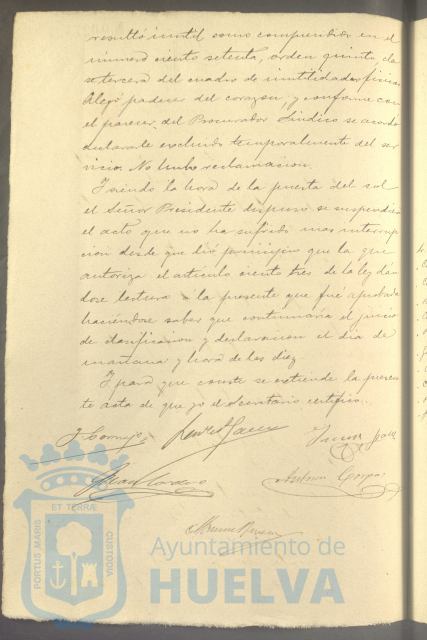 resultó inutil como comprendido en el
número ciento setenta, orden quinto, cla
se tercera del cuadro de inutilidades físicas
Alegó padecer del corazón, y conforme con
el parecer del Procurador Síndico se acordó
declararle excluido temporalmente del ser
vicio. No hubo reclamacion.
Y siendo la hora de la puesta del sol
el Señor Presidente dispuso se suspendiera
el acto que no ha sufrido mas interrup
cion desde que dió principio que la que
autoriza el artículo ciento tres de la ley dán
dose lectura a la presente que fué aprobada
haciéndose saber que continuaría el juicio
de clasificacion y declaracion el dia de
mañana y hora de las diez
Y para que conste se extiende la presen
te acta de que yo el Secretario certifico.
J Cornejo
Antonio
PORTUS MARIS
ET TERRÆ
CUSTODIA
Ayuntamiento de
HUELVA